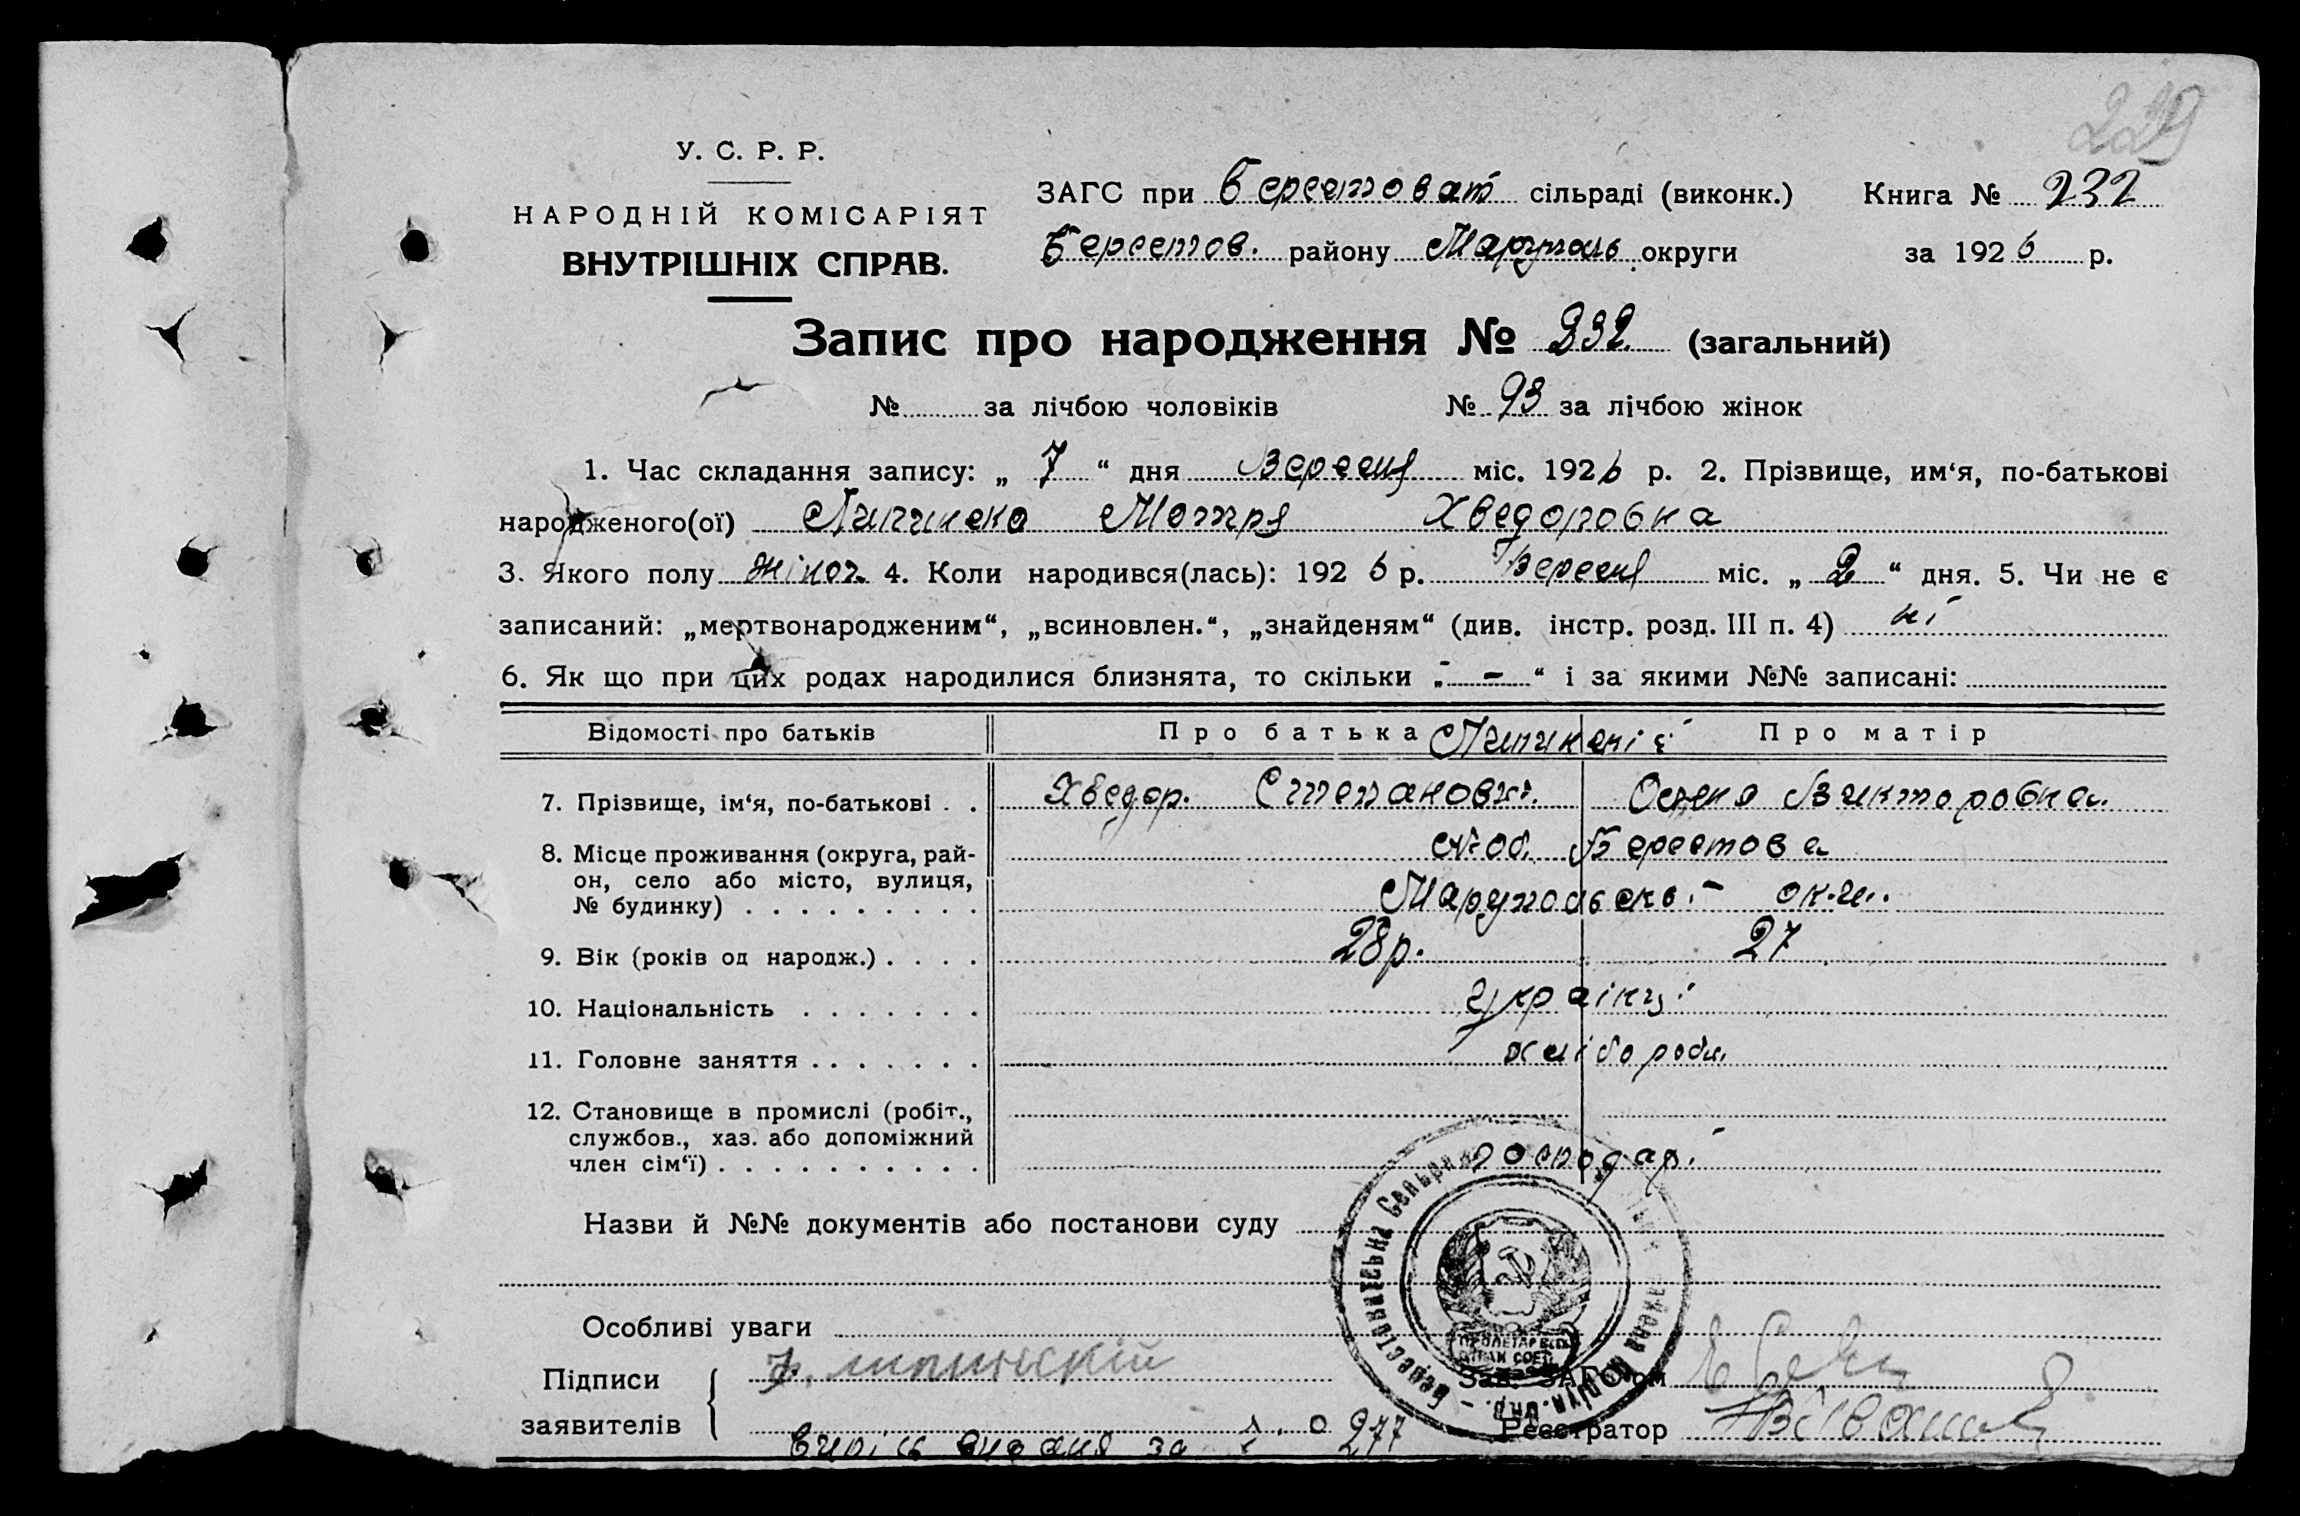 229
У. С. Р. Р.
НАРОДНІЙ КОМІСАРІЯТ
ВНУТРІШНІХ СПРАВ.
ЗАГС при Берестоват сільраді (виконк.) Книга № 232
Берестов. району Маруполь округи за 1926 р.
Запис про народження № 232 (загальний)
№ за лічбою чоловіків № 93 за лічбою жінок
1. Час складання запису: „ 7 “ дня Вересня міс. 1926 р. 2. Прізвище, им‘я, по-батькові
народженого(ої) Липинська Мотря Хведоровна
3. Якого полу жіноч. 4. Коли народився(лась): 1926 р. Вересня міс. „ 2 “ дня. 5. Чи не є
записаний: „мертвонародженим“, „всиновлен.“, „знайденям“ (див. інстр. розд. III п. 4) ні
6. Як що при цих родах народилися близнята, то скільки „ - “ і за якими №№ записані:
Відомості про батьків Про батька Про матір
Липинські
7. Прізвище, ім‘я, по-батькові . . Хведор. Степанович. Викторовна
8. Місце проживання (округа, рай-
он, село або місто, вулиця,
№ будинку) . . . . . . . . .
Берестова
Марупольськ. - окр.
9. Вік (років од народж.) . . . . 28р. 27
10. Національність . . . . . . . Українці
11. Головне заняття . . . . . . . хлібороби
12. Становище в промислі (робіт.,
службов., хаз. або допоміжний
член сім‘ї) . . . . . . . . . . господарі
Назви й №№ документів або постанови суду
Особливі уваги
Підписи
заявителів
Ф. липинскій
Зав. ЗАГС‘ом
Реєстратор
виріс видана за 277
Берестоватська Сельрада
ПРОЛЕТАР ВСІХ
КРАЇН